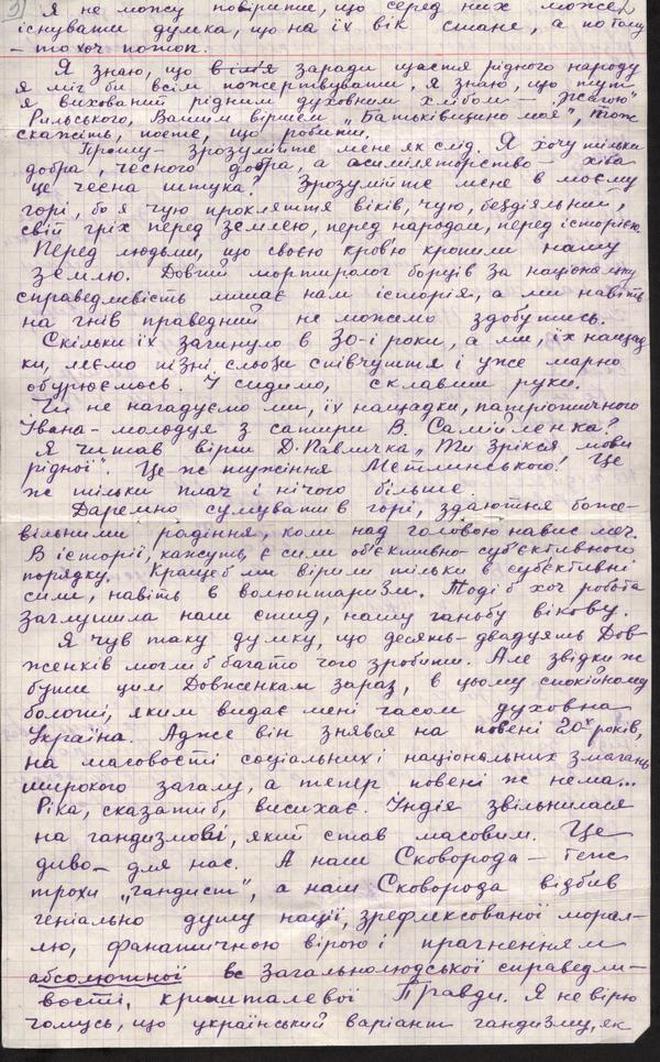 9)
Я не можу повірити, що серед них може
існувати думка, що на їх вік стане, а потому
– то хоч потоп.
Я знаю, що в ім'я заради щастя рідного народу
я міг би всім пожертвувати, я знаю, що тут
я вихований рідним духовним хлібом – „Жагою"
Рильського, Вашим віршем „Батьківщино моя", тож
скажіть, поете, що робити.
Прошу – зрозумійте мене як слід. Я хочу тільки
добра, чесного добра, а асиміляторство – хіба
це чесна штука? Зрозумійте мене в моєму
горі, бо я чую прокляття віків, чую, бездіяльний,
свій гріх перед землею, перед народом, перед історією.
Перед людьми, що своєю кров'ю кропили нашу
землю. Довгий мортиролог борців за національну
справедливість лишає нам історія, а ми навіть
на гнів праведний не можемо здобутись.
Скільки їх загинуло в 30-і роки, а ми, їх нащад
ки, ллємо пізні сльози співчуття і уже марно
обурюємось. І сидимо, склавши руки.
Чи не нагадуємо ми, їх нащадки, патріотичного
Івана – молодця з сатири В. Самійленка?
Я читав вірш Д. Павличка „Ти зрікся мови
рідної". Це ж тужіння Метлинського! Це
ж тільки плач і нічого більше.
Даремно сумувати в горі, здаються боже-
вільними радіння, коли над головою навис меч.
В історії, кажуть, є сили об'єктивно-суб'єктивного
порядку. Краще б ми вірили тільки в суб'єктивні
сили, навіть в волюнтаризм. Тоді б хоч робота
заглушила наш стид, нашу ганьбу вікову.
Я чув таку думку, що десять-двадцять Дов-
женків могли б багато чого зробити. Але звідки ж
бути цим Довженкам зараз, в цьому спокійному
болоті, яким видає мені часом духовна
Україна. Адже він знявся на повені 20х років,
на масовості соціальних і національних змагань
широкого загалу, а тепер повені ж нема...
Ріка, сказати б, висихає. Індія звільнилася
на гандизмові, який став масовим. Це
диво – для нас. А наш Сковорода – теж
трохи „гандист", а наш Сковорода відбив
геніально душу нації, зрефлексованої мора-
ллю, фанатичною вірою і прагненням
абсолютної загальнолюдської справедли-
вості, кришталевої Правди. Я не вірю
чомусь, що український варіант гандизму, як